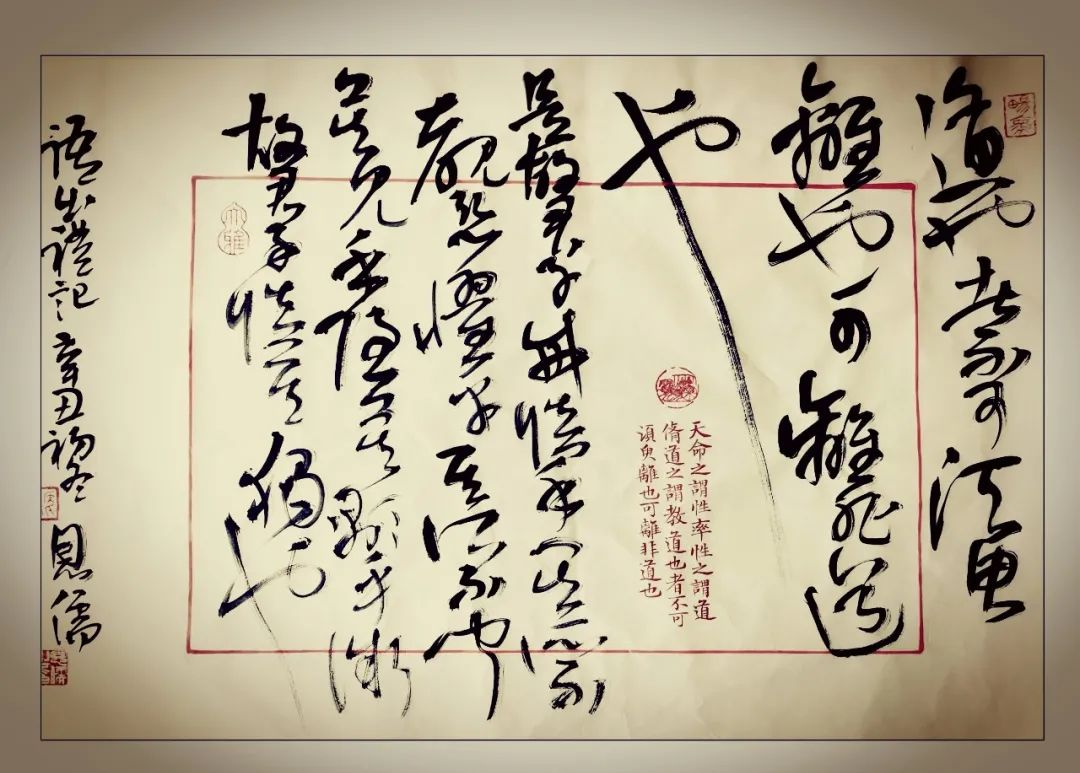 道也者不可須臾
離也可離非道
也
是故君子戒慎乎其所不
覩恐懼乎其所不聞
莫見乎隱莫顯乎微
故君子慎其獨也
語出禮記辛丑初冬恩儒
天命之謂性率性之謂道
脩道之謂教道也者不可
須臾離也可離非道也
大雅